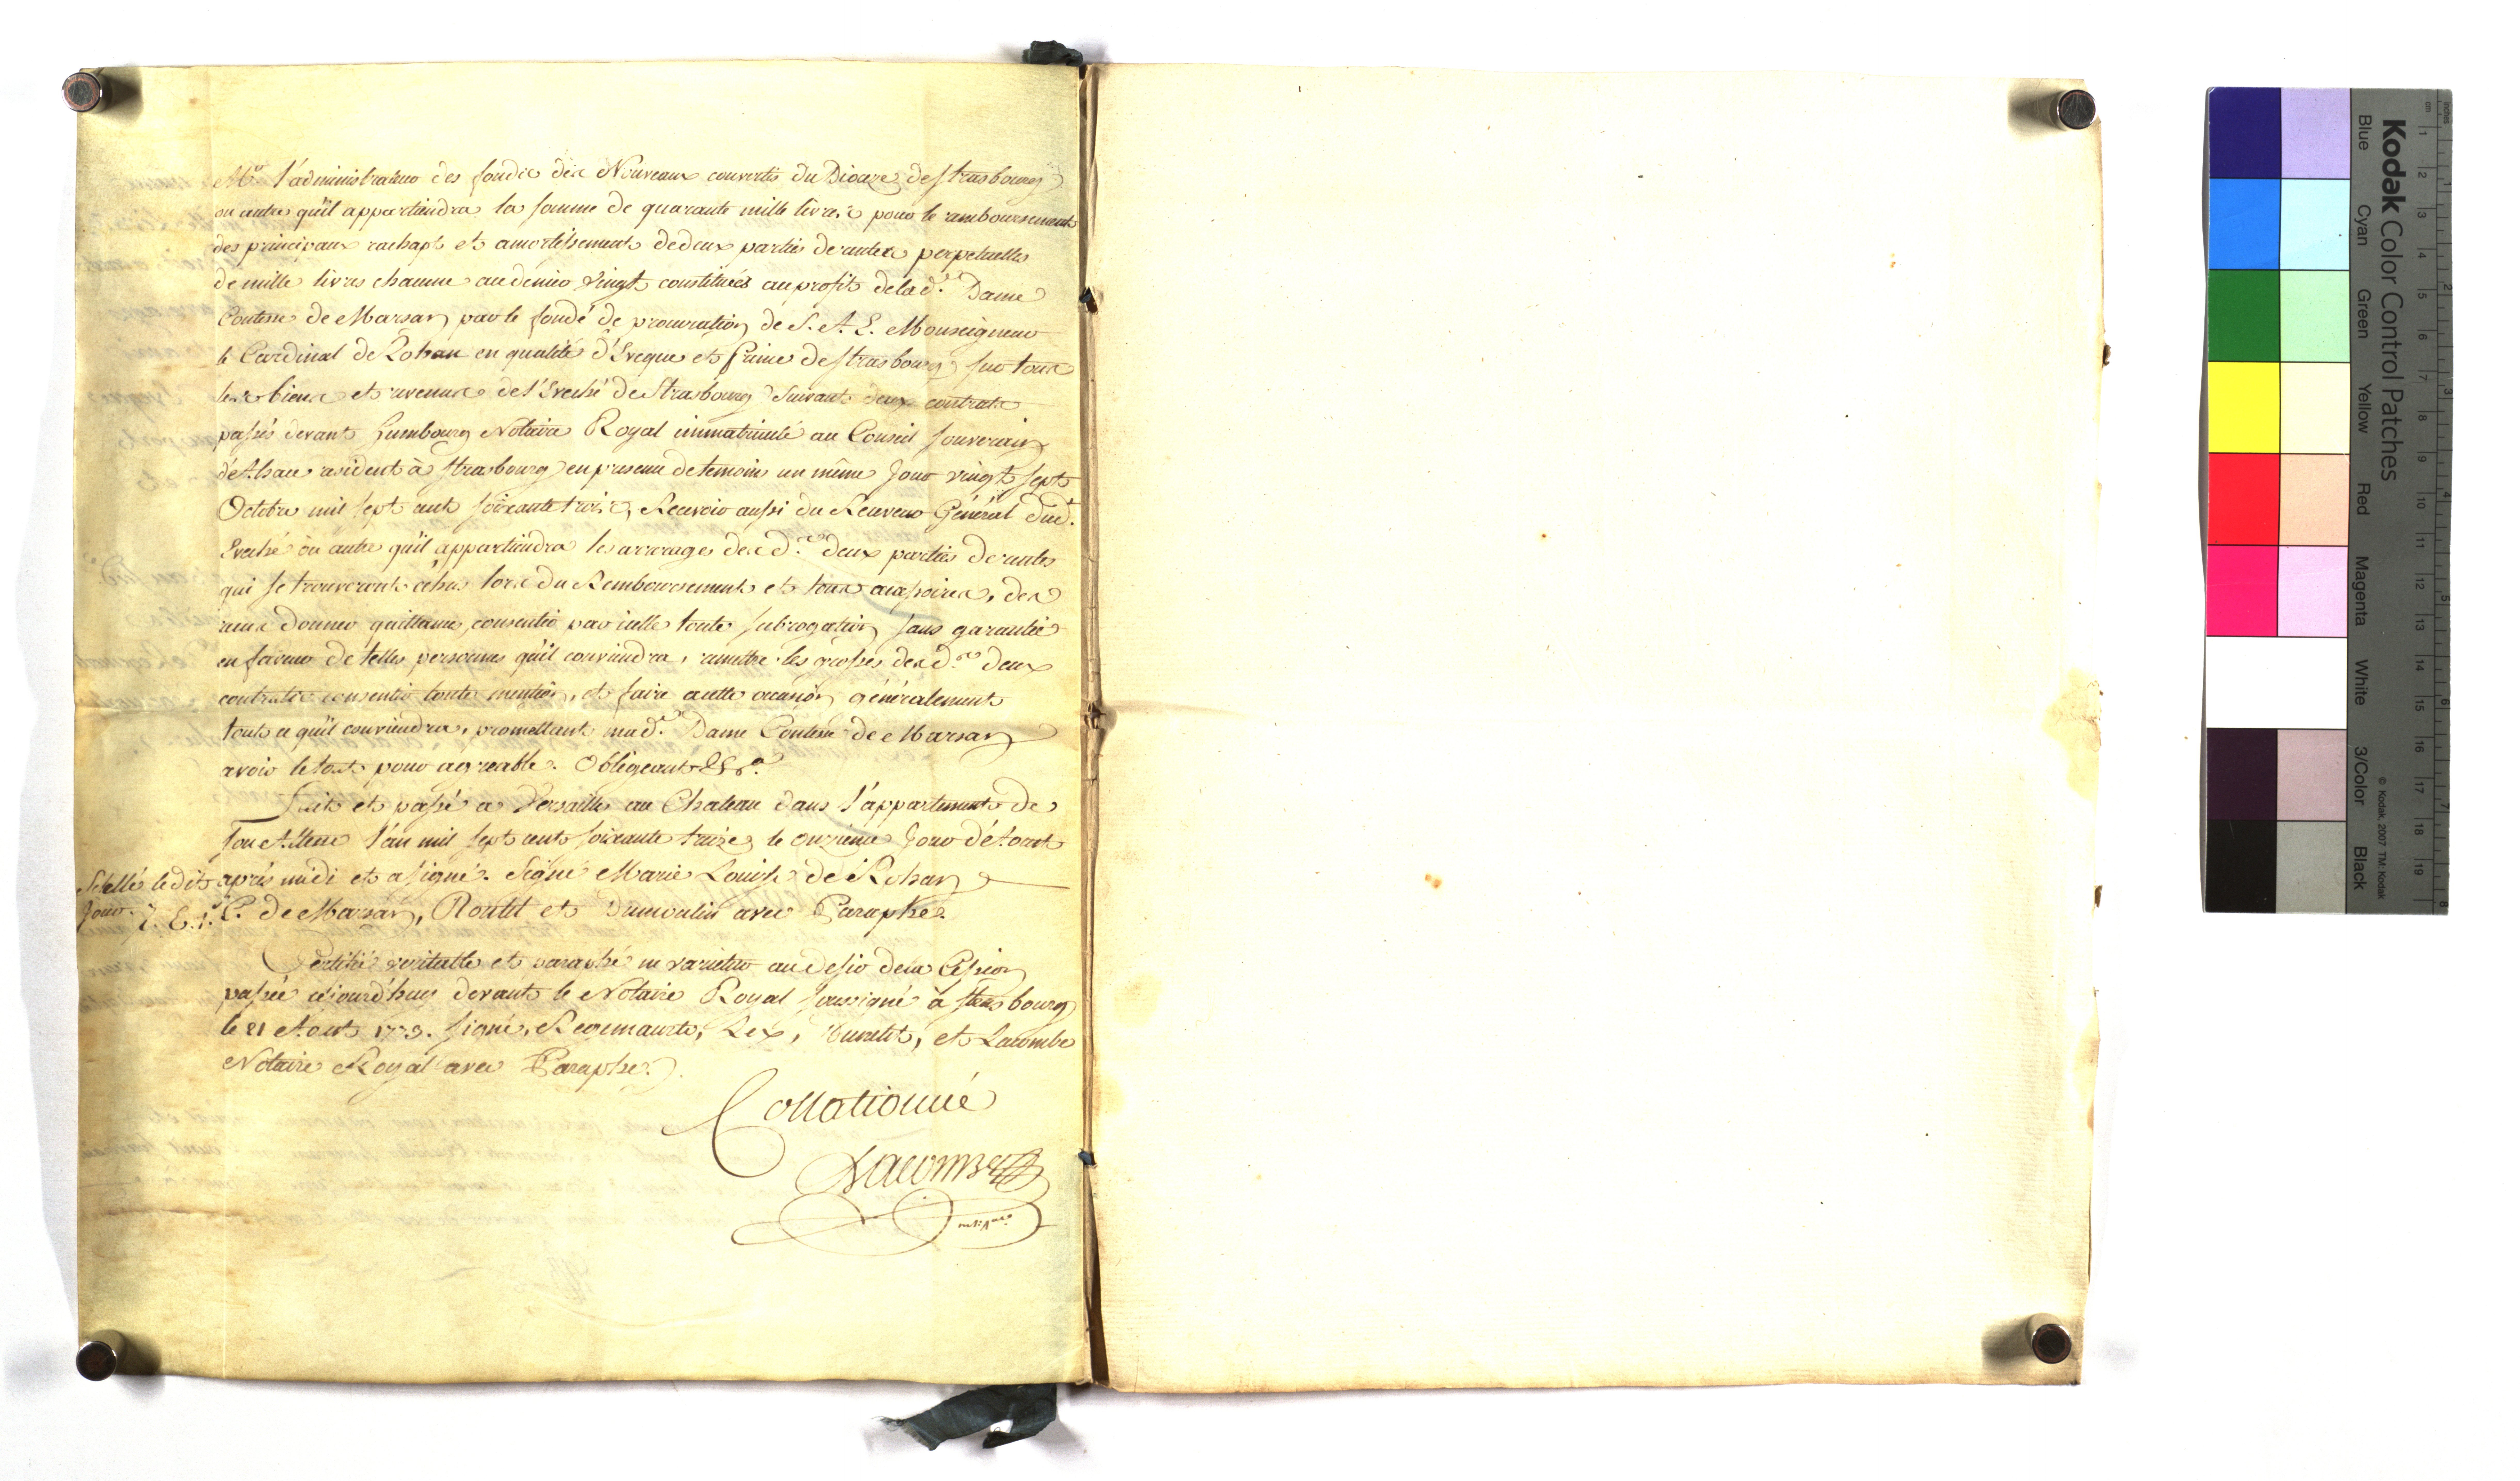 Mr. l'administrateur des fondic des Nouveaux convertis du Diocaze de Strasbourg
ou autre qu'il appartiendra la somme de quarante mille livres pour le remboursement
des principaux rachapt et amortissement de deux parties de rentes perpetuelles
de mille livres chacune au denier vingt constituées au profit de lad. Dame
Comtesse de Marsan par le fondé de procuration de S. A. E. Monseigneur
le Cardinal de Rohan en qualité d'Eveque et Prince de Strasbourg sur tous
les biens et revenus de l'Eveché de Strasbourg Suivant deux contrats
passés devant Humbourg Notaire Royal immatriculé au Conseil souverain
d'Alsace resident à Strasbourg en presence de temoins un même jour vingt sept
Octobre mil sept cent soixante trois, Recevoir aussi du Receveur Général dud.
Eveché ou autre qu'il appartiendra les arrerages desd. deux parties de rentes
qui se trouveront échus lors du Remboursement et tous accessoires, des
reçus donner quittance, consentir par icelle toute subrogation sans garantie
en faveur de telles personnes qu'il conviendra, remettre les grosses desd. deux
contrats consentir toute mention, et faire à cette occasion généralement
tout ce qu'il conviendra, promettant mad. Dame Comtesse de Marsan
avoir le tout pour agreable. Obligeant &ca.
Fait et passé a Versailles au Chateau dans l'appartement de
Son Altesse l'an mil sept cent soixante treize le onzieme jour d'Aout
Scellé ledit après midi et a signé. Signé Marie Louise de Rohan
jour. C. de Marsan, Routtet et Dumoulin avec Paraphe.
Certifié veritable et paraphé ne varietur au desir de la Cession
passée cejourd'huy devant le Notaire Royal soussigné à Strasbourg
le 21 Aout 1773. signé, Regemaurte, Lex, et Lacombe
Notaire Royal avec Paraphe.
Collationné
Lacombe